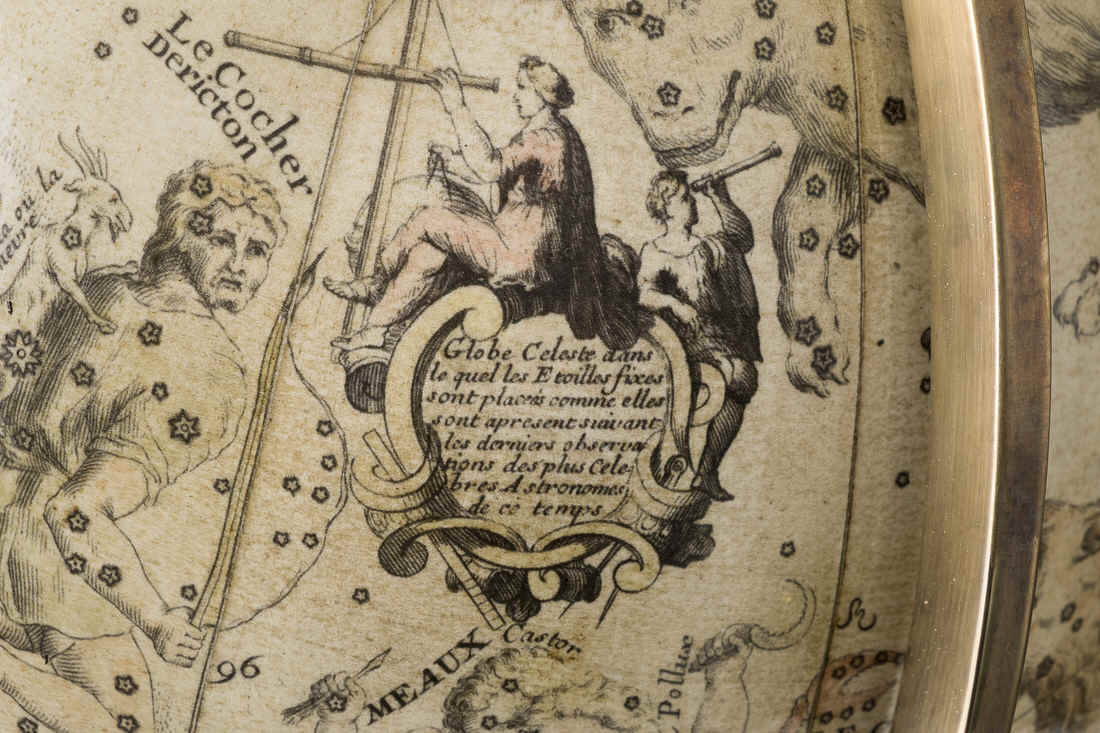 Le Cocher
Dericton
ou la
Globe Celeste dans
le quel les Etoilles fixes
sont placeés comme elles
sont apresent suivant
les derniers observa
tions des plus Cele-
bres Astronomes
de ce temps
96
MEAUX
Castor
Pollux